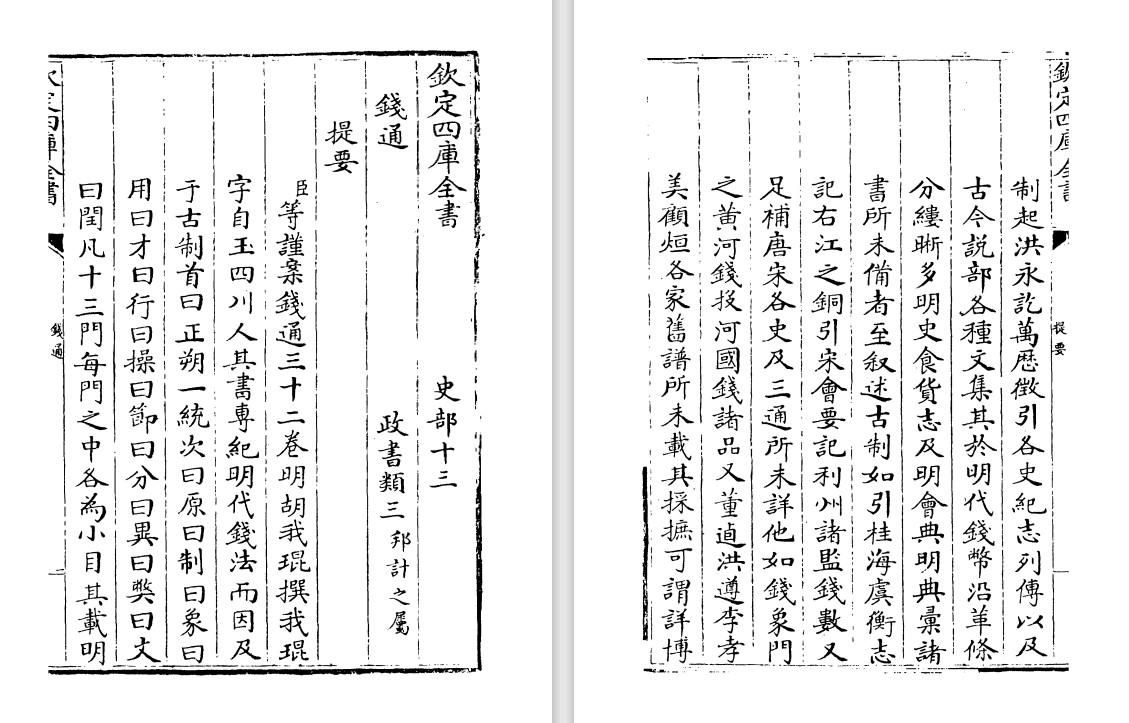 欽定四庫全書
史部十三
錢通
政書類三邦計之屬
提要
臣等謹案錢通三十二卷明胡我琨撰我琨
字自玉四川人其書專紀明代錢法而因及
于古制首曰正朔一統次曰原曰制曰象曰
用曰才曰行曰操曰節曰分曰異曰弊曰文
曰閏凡十三門每門之中各為小目其載明
欽定四庫全書
錢通
一
欽定四庫全書
提要
制起洪永訖萬歴徴引各史紀志列傳以及
古今説部各種文集其於明代錢幣沿革條
分縷晰多明史食貨志及明會典明典彙諸
書所未備者至叙述古制如引桂海虞衡志
記右江之銅引宋會要記利州諸監錢數又
足補唐宋各史及三通所未詳他如錢象門
之黃河錢投河國錢諸品又董逌洪遵李孝
美顧烜各家舊譜所未載其採摭可謂詳博